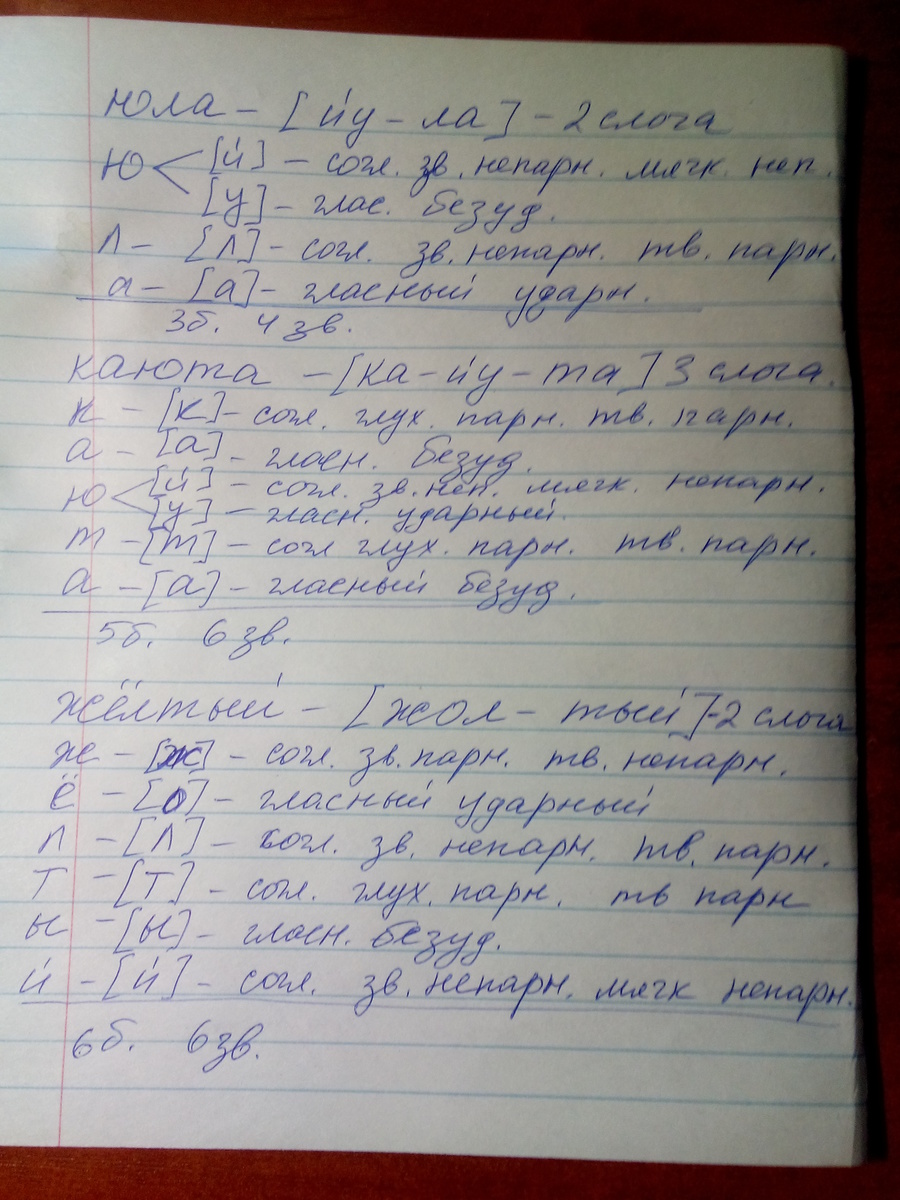 юла – [йу – ла] – 2 слога
ю < [й] – согл. зв. непарн. мягк. неп.
[у] – глас. безуд.
л – [л] – согл. зв. непарн. тв. парн.
а – [а] – гласный ударн.
3б. 4 зв.
каюта – [ка – йу – та] 3 слога.
к – [к] – согл. глух. парн. тв. парн.
а – [а] – гласн. безуд.
ю < [й] – согл. зв. неп. мягк. непарн.
[у] – гласн. ударный.
т – [т] – согл глух. парн. тв. парн.
а – [а] – гласный безуд.
5б. 6 зв.
жёлтый – [жол – тый] – 2 слога
ж – [ж] – согл. зв. парн. тв. непарн.
ё – [о] – гласный ударный
л – [л] – согл. зв. непарн. тв. парн.
т – [т] – согл. глух. парн. тв парн
ы – [ы] – гласн. безуд.
й – [й] – согл. зв. непарн. мягк непарн.
6б. 6 зв.